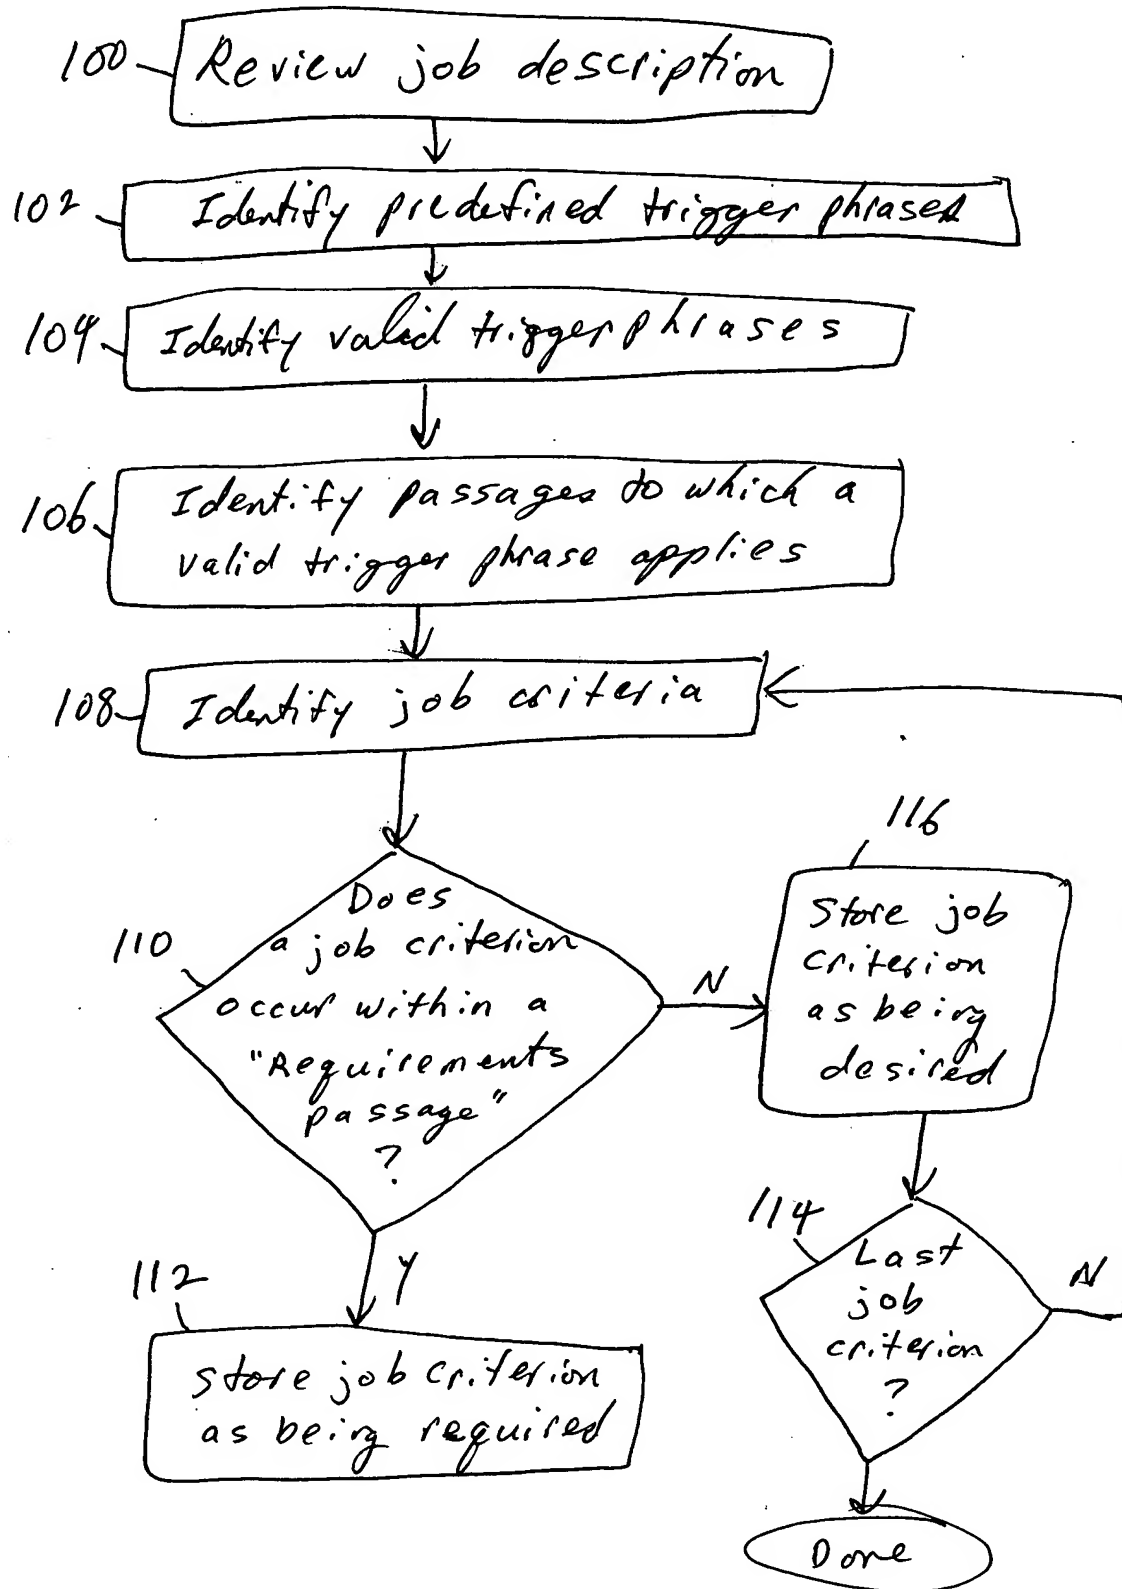 100
Review job description
102
Identify predefined trigger phrases
104
Identify valid trigger phrases
106
Identify passages to which a
valid trigger phrase applies
108
Identify job criteria
110
Does
a job criterion
occur within a
"Requirements
passage"
?
N
116
Store job
criterion
as being
desired
Y
112
Store job criterion
as being required
114
Last
job
criterion
?
N
Done